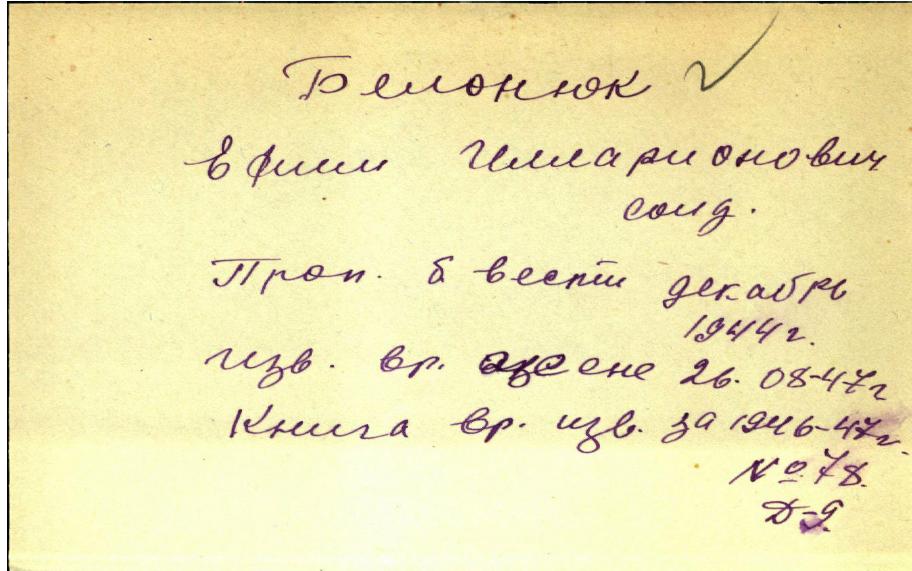 Белонюк
Ефим Илларионович
солд.
Проп. б вести декабрь
1944г.
изв. вр. жене 26. 08-47г
Книга вр. изв. за 1946-47г.
№ 78.
Д-9.